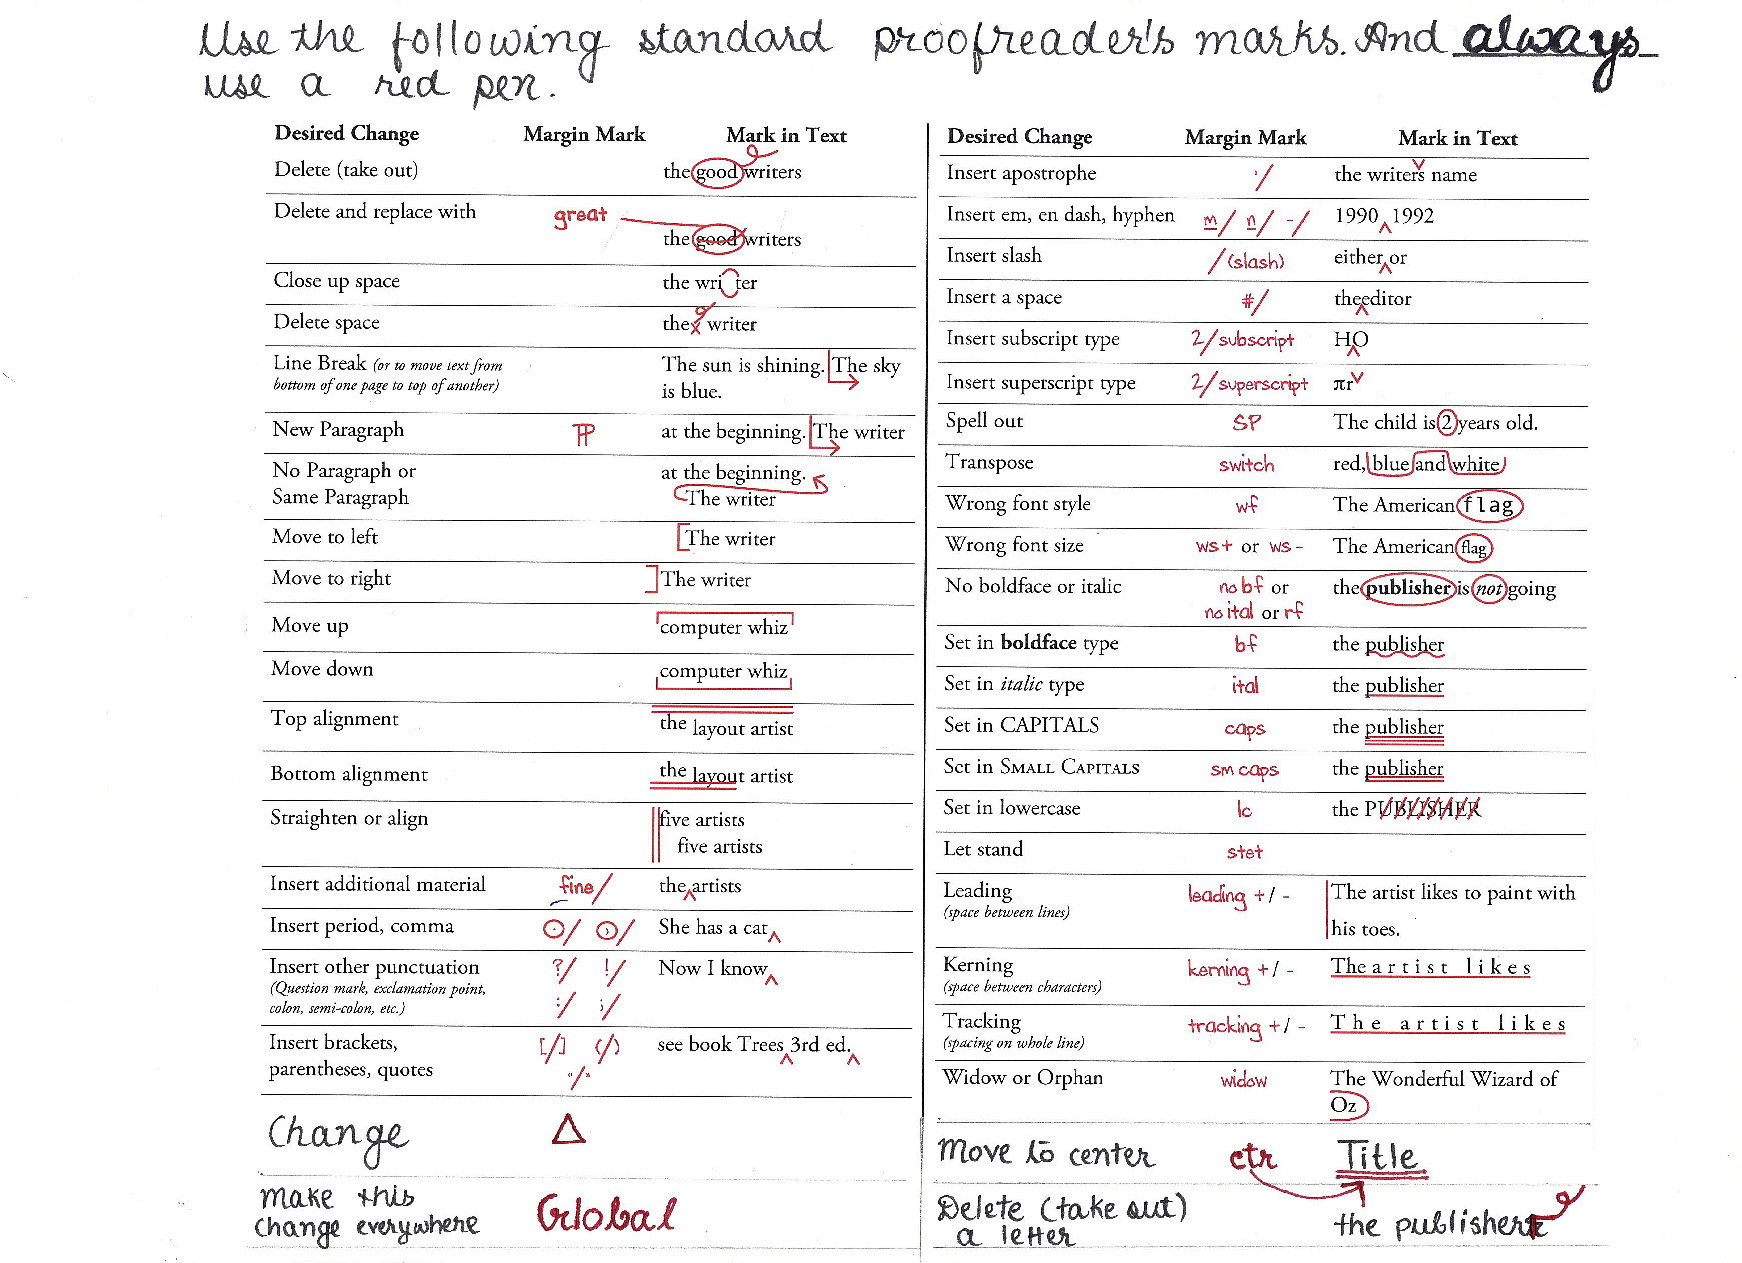 Use the following standard proofreader's marks. And always
use a red pen.
Desired Change Margin Mark Mark in Text
Delete (take out) the good writers
Delete and replace with great
the good writers
Close up space the wri ter
Delete space the writer
Line Break (or to move text from The sun is shining. The sky
bottom of one page to top of another) is blue.
New Paragraph at the beginning. The writer
No Paragraph or at the beginning.
Same Paragraph The writer
Move to left [The writer
Move to right ]The writer
Move up computer whiz
Move down computer whiz
Top alignment the layout artist
Bottom alignment the layout artist
Straighten or align five artists
five artists
Insert additional material fine/ the artists
Insert period, comma ⊙/ ,/ She has a cat
Insert other punctuation ?/ !/ Now I know
(Question mark, exclamation point,
colon, semi-colon, etc.) :/ ;/
Insert brackets, [/] (/) see book Trees 3rd ed.
parentheses, quotes "/"
Change Δ
Make this
change everywhere Global
Desired Change Margin Mark Mark in Text
Insert apostrophe '/ the writers name
Insert em, en dash, hyphen m/ n/ -/ 1990 1992
Insert slash /(slash) either or
Insert a space #/ theeditor
Insert subscript type 2/subscript HO
Insert superscript type 2/superscript πr
Spell out SP The child is 2 years old.
Transpose switch red, blue and white
Wrong font style wf The American flag
Wrong font size ws+ or ws- The American flag
No boldface or italic no bf or the publisher is not going
no ital or rf
Set in boldface type bf the publisher
Set in italic type ital the publisher
Set in CAPITALS caps the publisher
Set in SMALL CAPITALS sm caps the publisher
Set in lowercase lc the PUBLISHER
Let stand stet
Leading leading +/- The artist likes to paint with
(space between lines) his toes.
Kerning kerning +/- The artist likes
(space between characters)
Tracking tracking +/- The artist likes
(spacing on whole line)
Widow or Orphan widow The Wonderful Wizard of
Oz
Move to center ctr Title
Delete (take out) the publisher
a letter